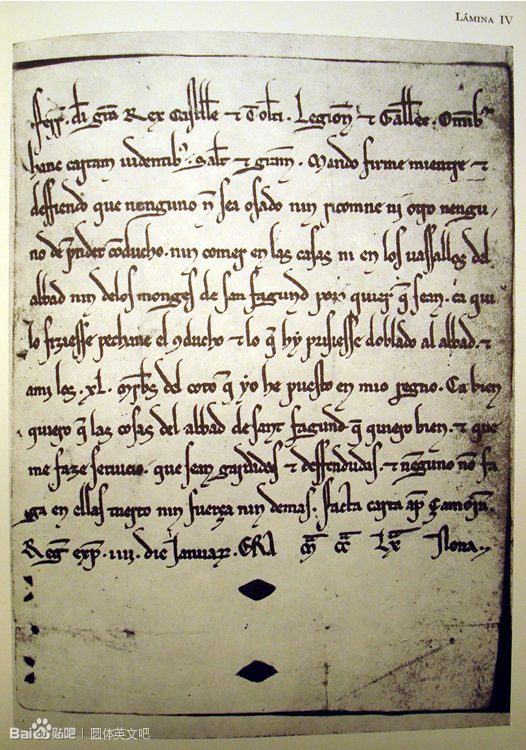 LÁMINA IV
ffeɼɼ. dī grā Rex Castelle et Toleti. Legionī et Gallee. Omībꝰ
hanc cartam uidentibꝰ. Salt et grām. Mando firme mientre et
deffiendo que nenguno nō sea osado nin ricomne ni otro nengu-
no de prender conducho. nin comer en las casas ni en los uassallos del
abbad nin delos monges de san fagund por quier q̄ sean. ca qui
lo fiziesse pechar me ie el ꝯducho et lo q̄ hy prisiesse doblado al abbad. et
a mi los .xL. mr̄bs del coto q̄ yo he puesto en mio regno. Ca bien
quiero q̄ las cosas del abbad de sant fagund q̄ quiero bien. et que
me faze seruicio. que sean guardadas et deffendudas. et nenguno nō fa
ga en ellas tuerto nin fuerça nin demas. facta carta ap̄ çamorā.
Reḡ exp̄. .iiij. die Januar. ERA m̄ c̄c̄ Lx̄ Nona.
Bai贴吧 | 圆体英文吧